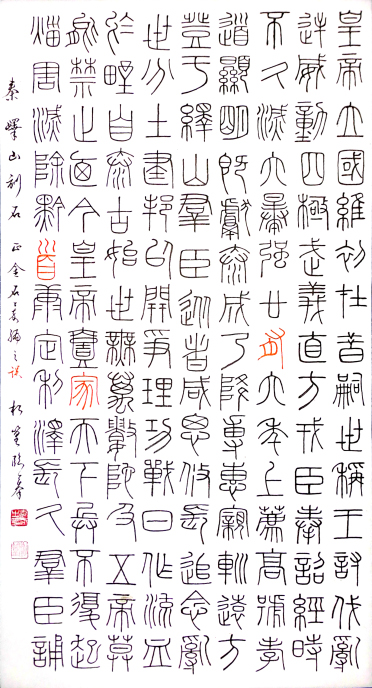 皇帝立國維初在昔嗣世稱王討伐亂
逆威動四極武義直方戎臣奉詔經時
不久滅六暴強廿有六年上薦高號孝
道顯明既獻泰成乃降專惠親巡遠方
登于繹山羣臣從者咸思攸長追念亂
世分土建邦以開爭理功戰日作流血
於野自泰古始世無萬數陀及五帝莫
能禁止迺今皇帝壹家天下兵不復起
災害滅除黔首康定利澤長久羣臣誦
秦嶧山刻石 正金石萃編之誤 臨摹